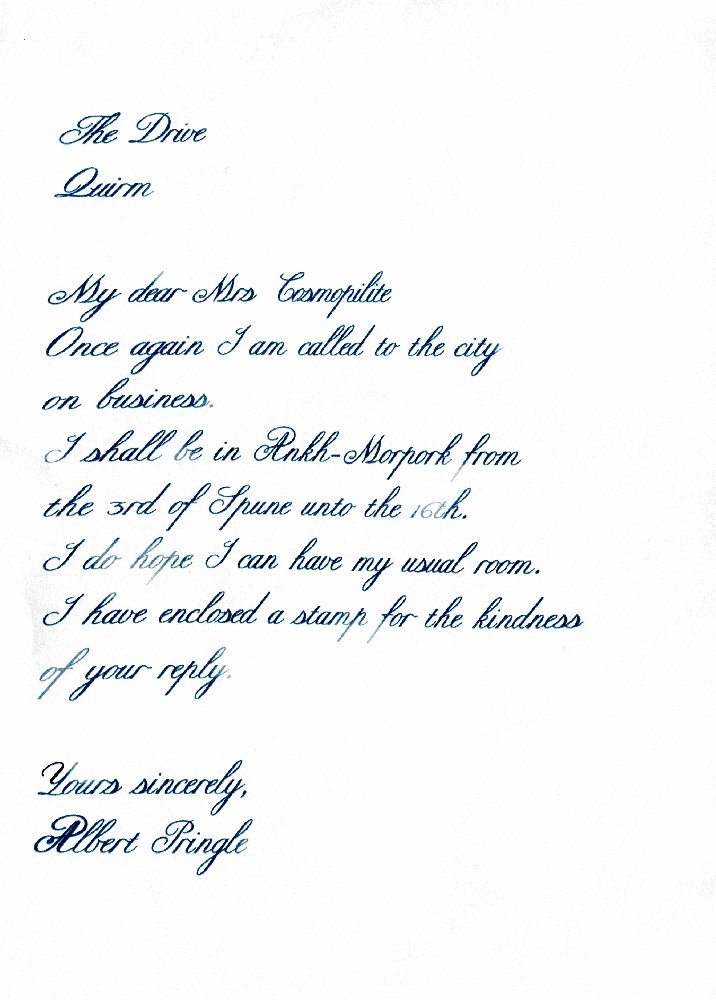 The Drive
Quirm
My dear Mrs Cosmopilite
Once again I am called to the city
on business.
I shall be in Ankh-Morpork from
the 3rd of Spune unto the 16th.
I do hope I can have my usual room.
I have enclosed a stamp for the kindness
of your reply.
Yours sincerely,
Albert Pringle